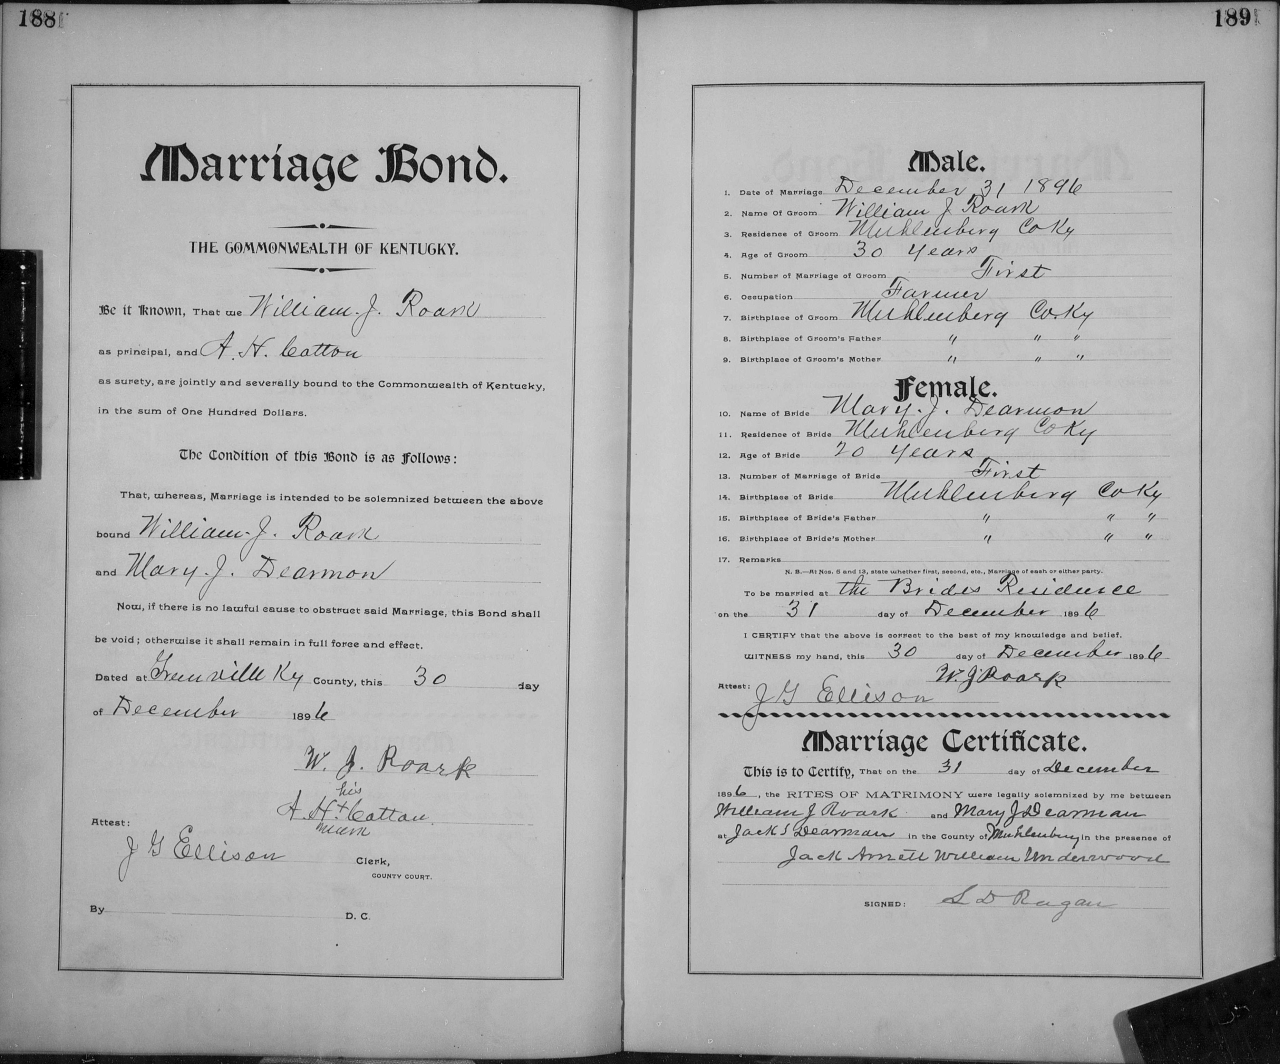 188
Marriage Bond.
THE COMMONWEALTH OF KENTUCKY.
Be it known, That we William. J. Roark
as principal, and A. H. Cotton
as surety, are jointly and severally bound to the Commonwealth of Kentucky,
in the sum of One Hundred Dollars.
The Condition of this Bond is as follows:
That, whereas, Marriage is intended to be solemnized between the above
bound William. J. Roark
and Mary. J. Dearmon
Now, if there is no lawful cause to obstruct said Marriage, this Bond shall
be void; otherwise it shall remain in full force and effect.
Dated at Greenville Ky County, this 30 day
of December 1896
W. J. Roark
his
A. H. + Cotton.
mark
Attest:
J G Ellison Clerk,
COUNTY COURT.
By D. C.
189
Male.
1. Date of Marriage December 31 1896
2. Name Of Groom William J Roark
3. Residence of Groom Muhlenberg Co Ky
4. Age of Groom 30 Years
5. Number of Marriage of Groom First
6. Occupation Farmer
7. Birthplace of Groom Muhlenberg Co. Ky
8. Birthplace of Groom's Father " " "
9. Birthplace of Groom's Mother " " "
Female.
10. Name of Bride Mary. J. Dearmon
11. Residence of Bride Muhlenberg Co Ky
12. Age of Bride 20 Years
13. Number of Marriage of Bride First
14. Birthplace of Bride Muhlenberg Co Ky
15. Birthplace of Bride's Father " " "
16. Birthplace of Bride's Mother " " "
17. Remarks
N. B.—At Nos. 5 and 13, state whether first, second, etc., Marriage of each or either party.
To be married at the Brides Residence
on the 31 day of December 1896
I CERTIFY that the above is correct to the best of my knowledge and belief.
WITNESS my hand, this 30 day of December 1896
W. J Roark
Attest: J G Ellison
Marriage Certificate.
This is to Certify, That on the 31 day of December
1896, the RITES OF MATRIMONY were legally solemnized by me between
William J Roark and Mary J Dearman
at Jack S Dearman in the County of Muhlenburg in the presence of
Jack Arnett William Underwood
SIGNED: L D Ragan